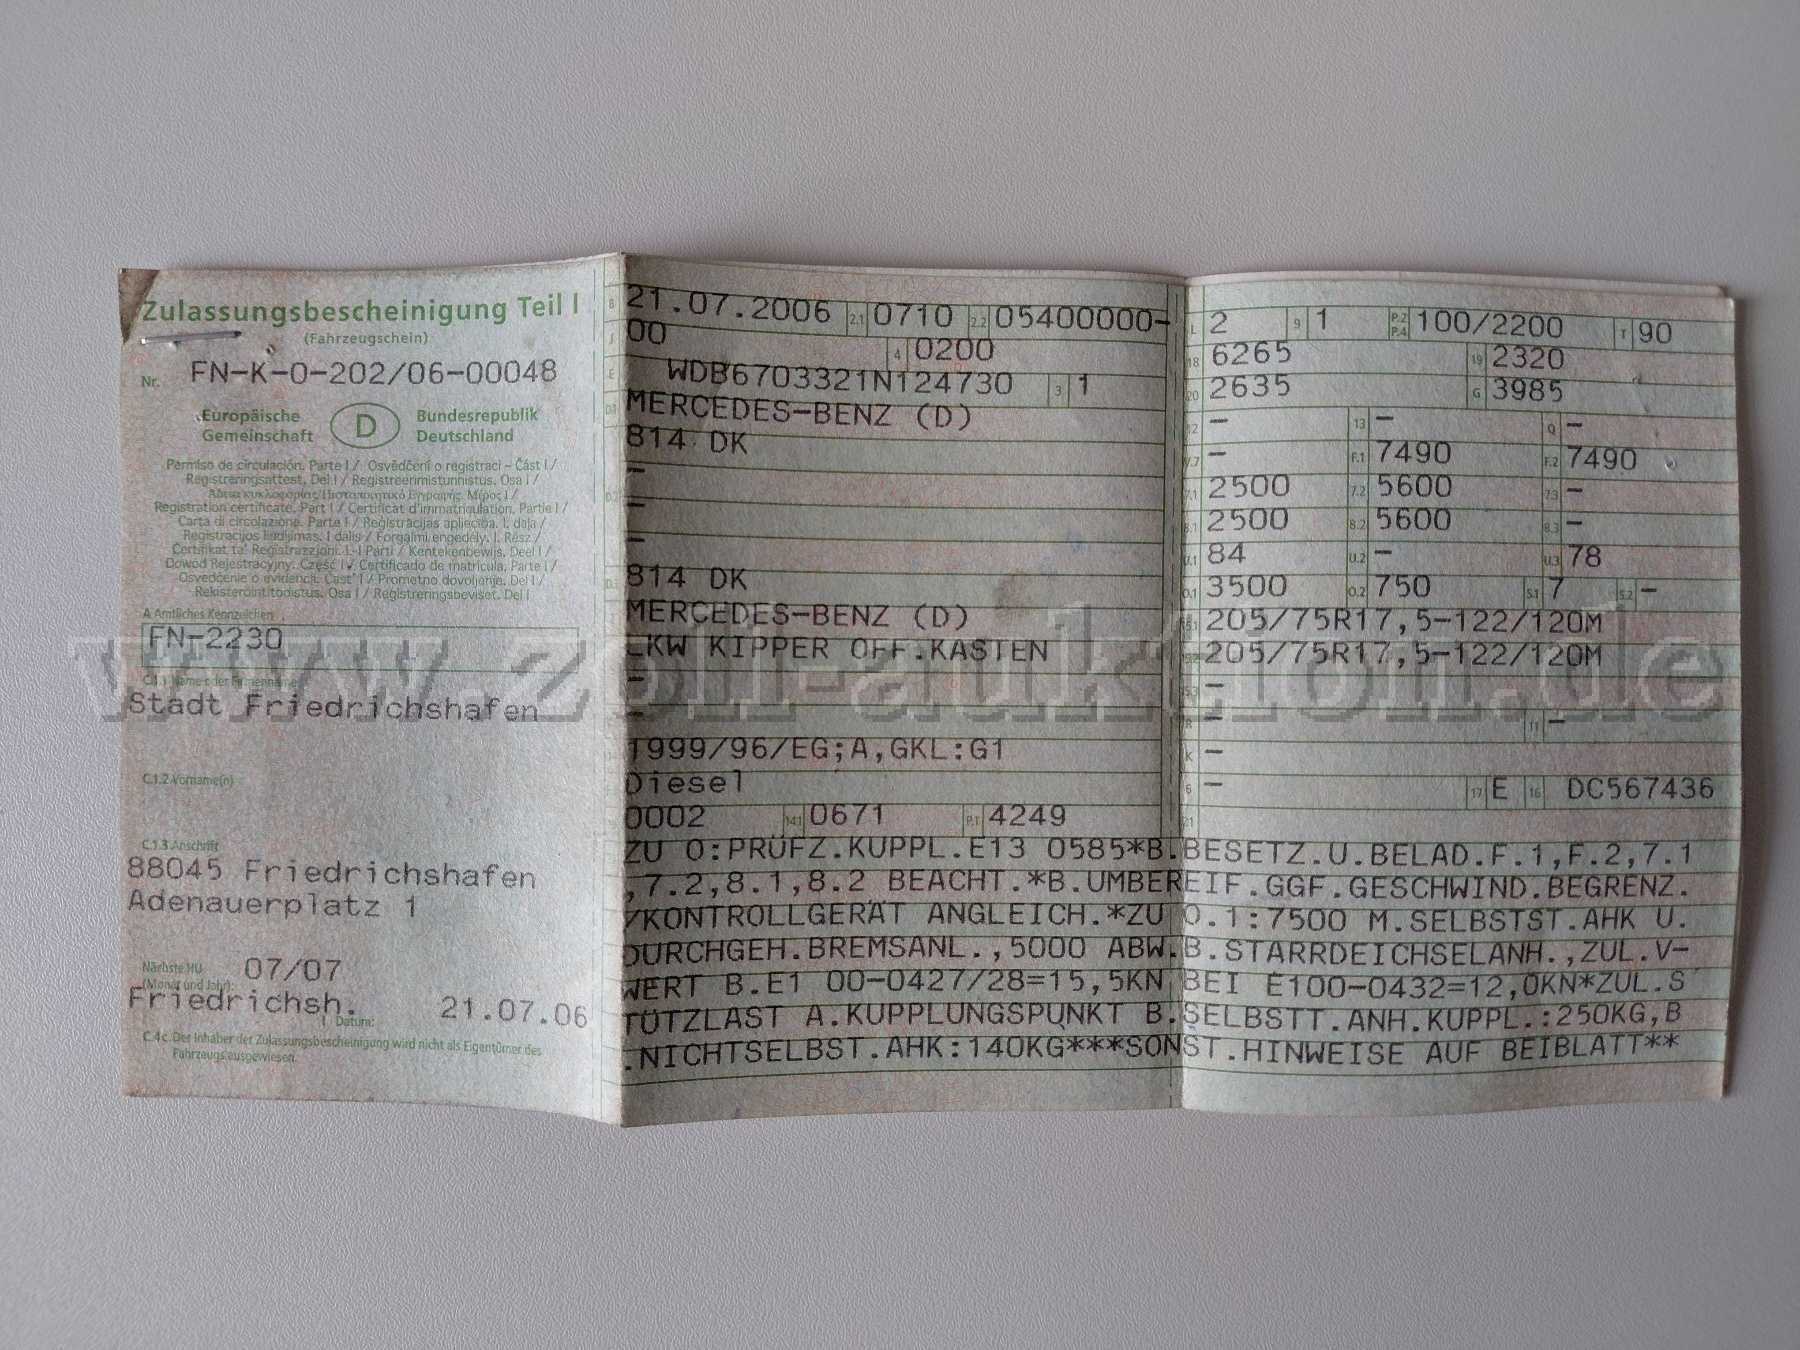 Zulassungsbescheinigung Teil I
(Fahrzeugschein)
Nr. FN-K-0-202/06-00048
Europäische Gemeinschaft D Bundesrepublik Deutschland
Permiso de circulación. Parte I / Osvědčení o registraci – Část I /
Registreringsattest. Del I / Registreerimistunnistus. Osa I /
Άδεια κυκλοφορίας/Πιστοποιητικό Εγγραφής. Μέρος I /
Registration certificate. Part I / Certificat d'immatriculation. Partie I /
Carta di circolazione. Parte I / Reģistrācijas apliecība. I. daļa /
Registracijos liudijimas. I dalis / Forgalmi engedély. I. Rész /
Ċertifikat ta' Reġistrazzjoni. L-I Parti / Kentekenbewijs. Deel I /
Dowód Rejestracyjny. Część I / Certificado de matrícula. Parte I /
Osvedčenie o evidencii. Časť I / Prometno dovoljenje. Del I /
Rekisteröintitodistus. Osa I / Registreringsbeviset. Del I
A Amtliches Kennzeichen
FN-2230
C.1.1 Name oder Firmenname
Stadt Friedrichshafen
C.1.2 Vorname(n)
C.1.3 Anschrift
88045 Friedrichshafen
Adenauerplatz 1
Nächste HU (Monat und Jahr): 07/07
Friedrichsh. Datum: 21.07.06
C.4c Der Inhaber der Zulassungsbescheinigung wird nicht als Eigentümer des
Fahrzeugs ausgewiesen.
B 21.07.2006 2.1 0710 2.2 05400000-
J 00 4 0200
E WDB6703321N124730 3 1
D.1 MERCEDES-BENZ (D)
814 DK
-
D.2 -
-
D.3 814 DK
MERCEDES-BENZ (D)
LKW KIPPER OFF.KASTEN
-
-
1999/96/EG;A,GKL:G1
Diesel
0002 14.1 0671 P.1 4249
L 2 9 1 P.2 P.4 100/2200 T 90
18 6265 19 2320
20 2635 G 3985
12 - 13 - Q -
V.7 - F.1 7490 F.2 7490
7.1 2500 7.2 5600 7.3 -
8.1 2500 8.2 5600 8.3 -
U.1 84 U.2 - U.3 78
O.1 3500 O.2 750 S.1 7 S.2 -
15.1 205/75R17,5-122/120M
15.2 205/75R17,5-122/120M
15.3 -
R - 11 -
K -
6 - 17 E 16 DC567436
21
ZU O:PRÜFZ.KUPPL.E13 0585*B.BESETZ.U.BELAD.F.1,F.2,7.1
,7.2,8.1,8.2 BEACHT.*B.UMBEREIF.GGF.GESCHWIND.BEGRENZ.
/KONTROLLGERÄT ANGLEICH.*ZU O.1:7500 M.SELBSTST.AHK U.
DURCHGEH.BREMSANL.,5000 ABW.B.STARRDEICHSELANH.,ZUL.V-
WERT B.E1 00-0427/28=15,5KN BEI E100-0432=12,0KN*ZUL.S
TÜTZLAST A.KUPPLUNGSPUNKT B.SELBSTT.ANH.KUPPL.:250KG,B
.NICHTSELBST.AHK:140KG***SONST.HINWEISE AUF BEIBLATT**
www.zoll-auktion.de